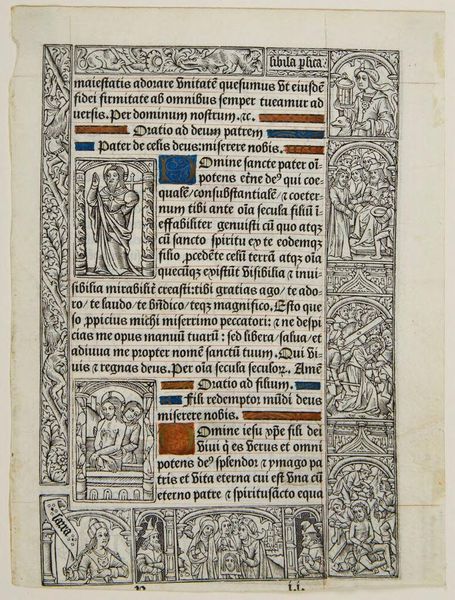 sibila p̱sica:
maiestatis adorare Vnitatē quesumus Vt eiusdē
fidei firmitate ab omnibus semper tueamur ad
versis. Per dominum nostrum. ⁊c.
Oratio ad deum patrem
Pater de celis deus: miserere nobis.
Omine sancte pater oī
potens et̄ne de⁹ qui coe-
qualē / consubstantialē / ⁊ coeter
num tibi ante oīa secula filiū ī
effabiliter genuisti cū quo atqꝫ
cū sancto spiritu ex te eodemqꝫ
filio ꝓcedēte celū terrā atqꝫ oīa
quecūqꝫ existūt Visibilia ⁊ inui
sibilia mirabilit̄ creasti: tibi gratias ago / te ado
ro / te laudo / te bn̄dico / teqꝫ magnifico. Esto que
so ꝓpicius michi miserrimo peccatori: ⁊ ne despi
cias me opus manuū tuarū: sed libera / salua / et
adiuua me propter nomē sanctū tuum. Qui Vi-
uis ⁊ regnas deus. Per oīa secula seculoꝝ. Amē
Oratio ad filium.
Fili redemptor mūdi deus
miserere nobis.
Omine iesu xp̄e fili dei
Viui q̄ es Verus et omni
potens de⁹ splendor ⁊ ymago pa
tris et Vita eterna cui est Vna cū
eterno patre ⁊ spiritusācto equa